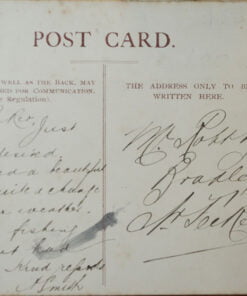 POST CARD.
WELL AS THE BACK, MAY
ED FOR COMMUNICATION.
Regulation).
THE ADDRESS ONLY TO B
WRITTEN HERE.
Just
a beautiful
quite a change
weather.
fishing
but had
Kind regards
A Smith
Mr Robt
Bradle